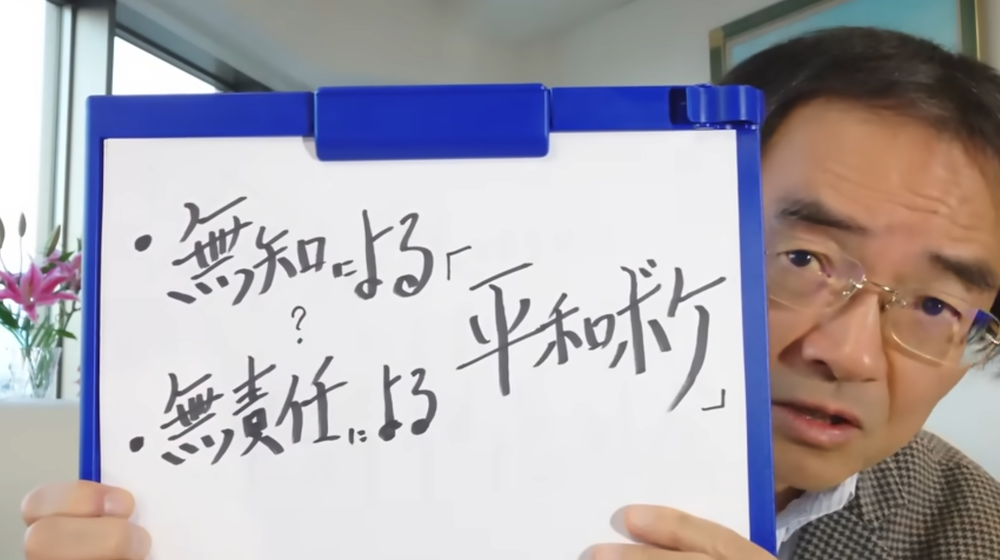 ・無知による「平和ボケ」
?
・無責任による